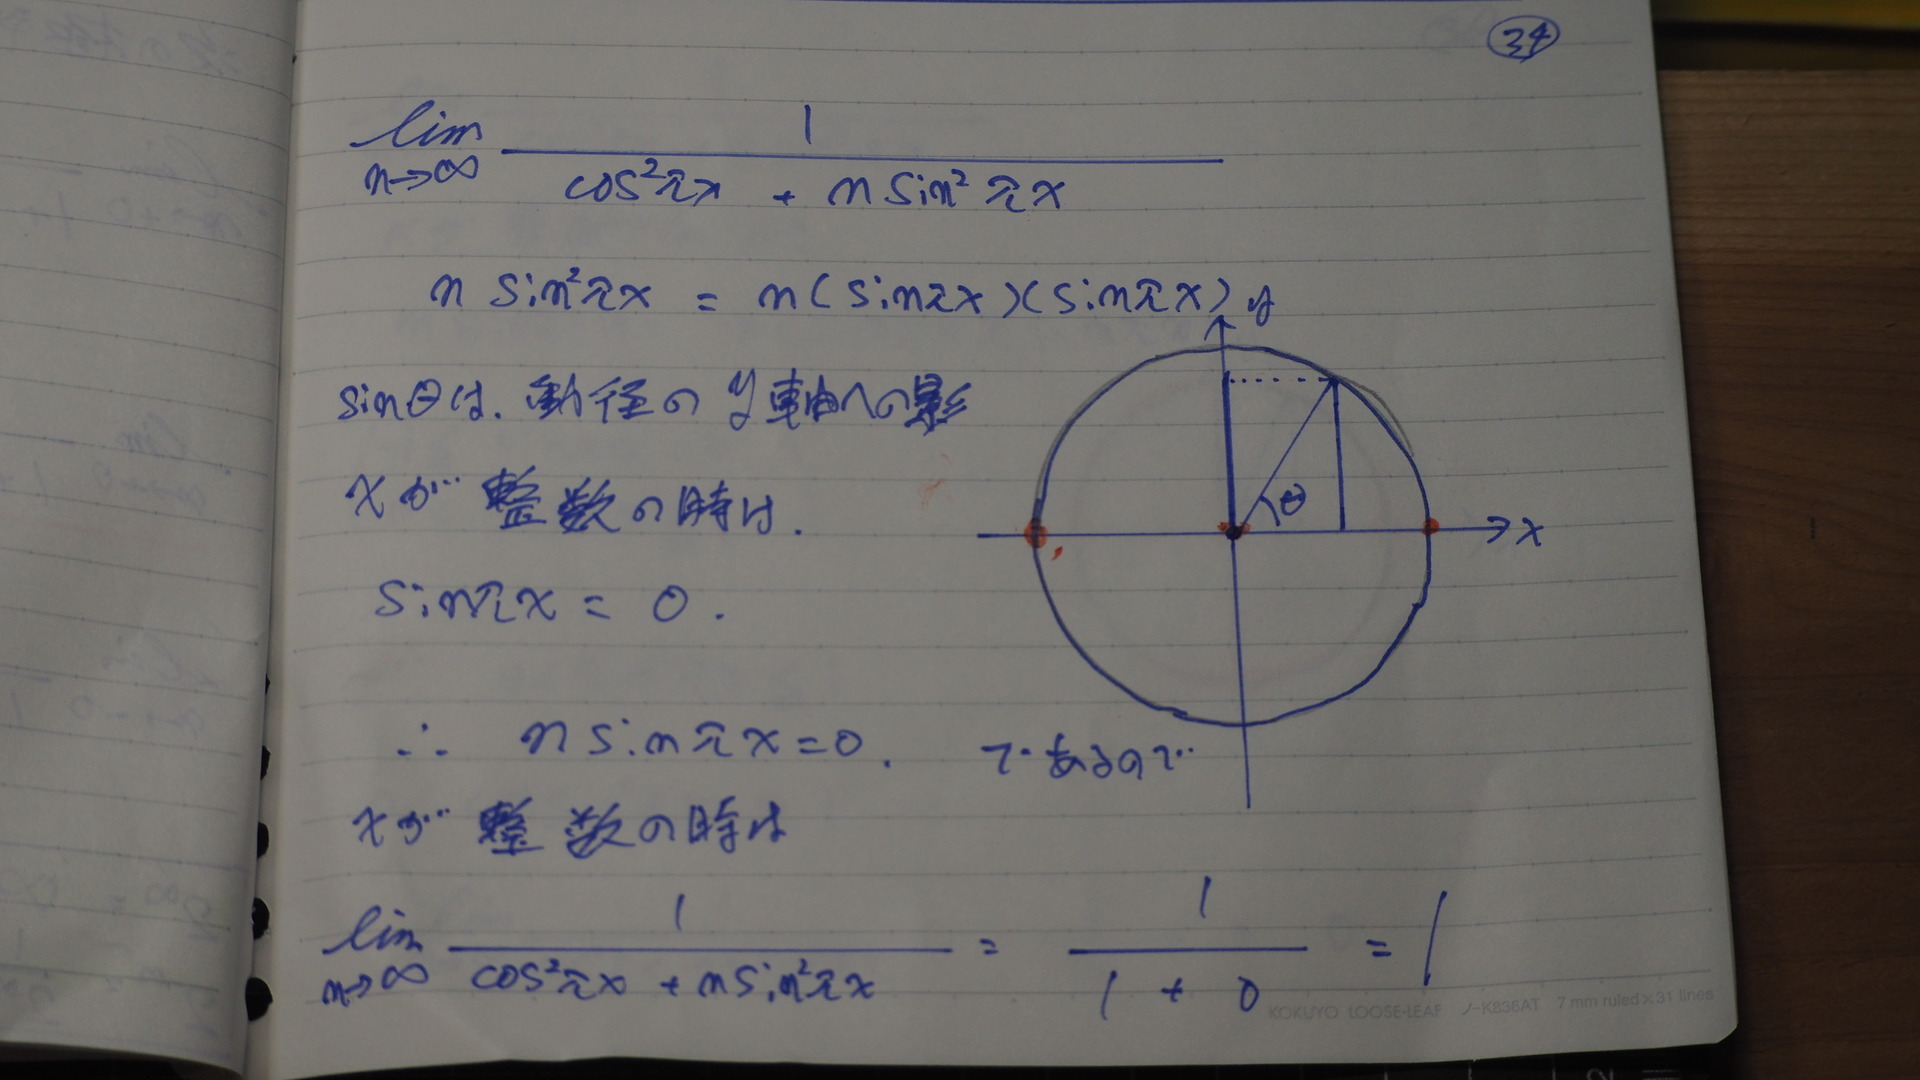 34
lim n→∞ 1 / cos²πx + n sin²πx
n sin²πx = n(sinπx)(sinπx)
y
sinθは、動径のy軸への影
xが整数の時は、
θ
x
sinπx = 0.
∴ n sinπx = 0. であるので
xが整数の時は
lim n→∞ 1 / cos²πx + n sin²πx = 1 / 1 + 0 = 1
KOKUYO LOOSE-LEAF ノ-K836AT 7 mm ruled×31 lines